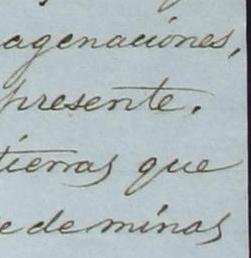 agenaciones,
presente.
tierras que
e de minas